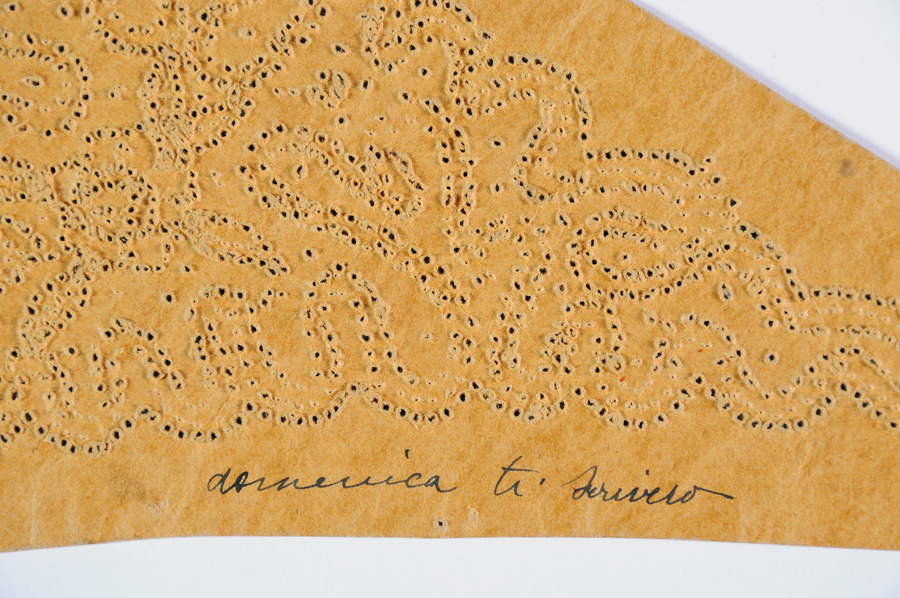 domenica ti scriverò